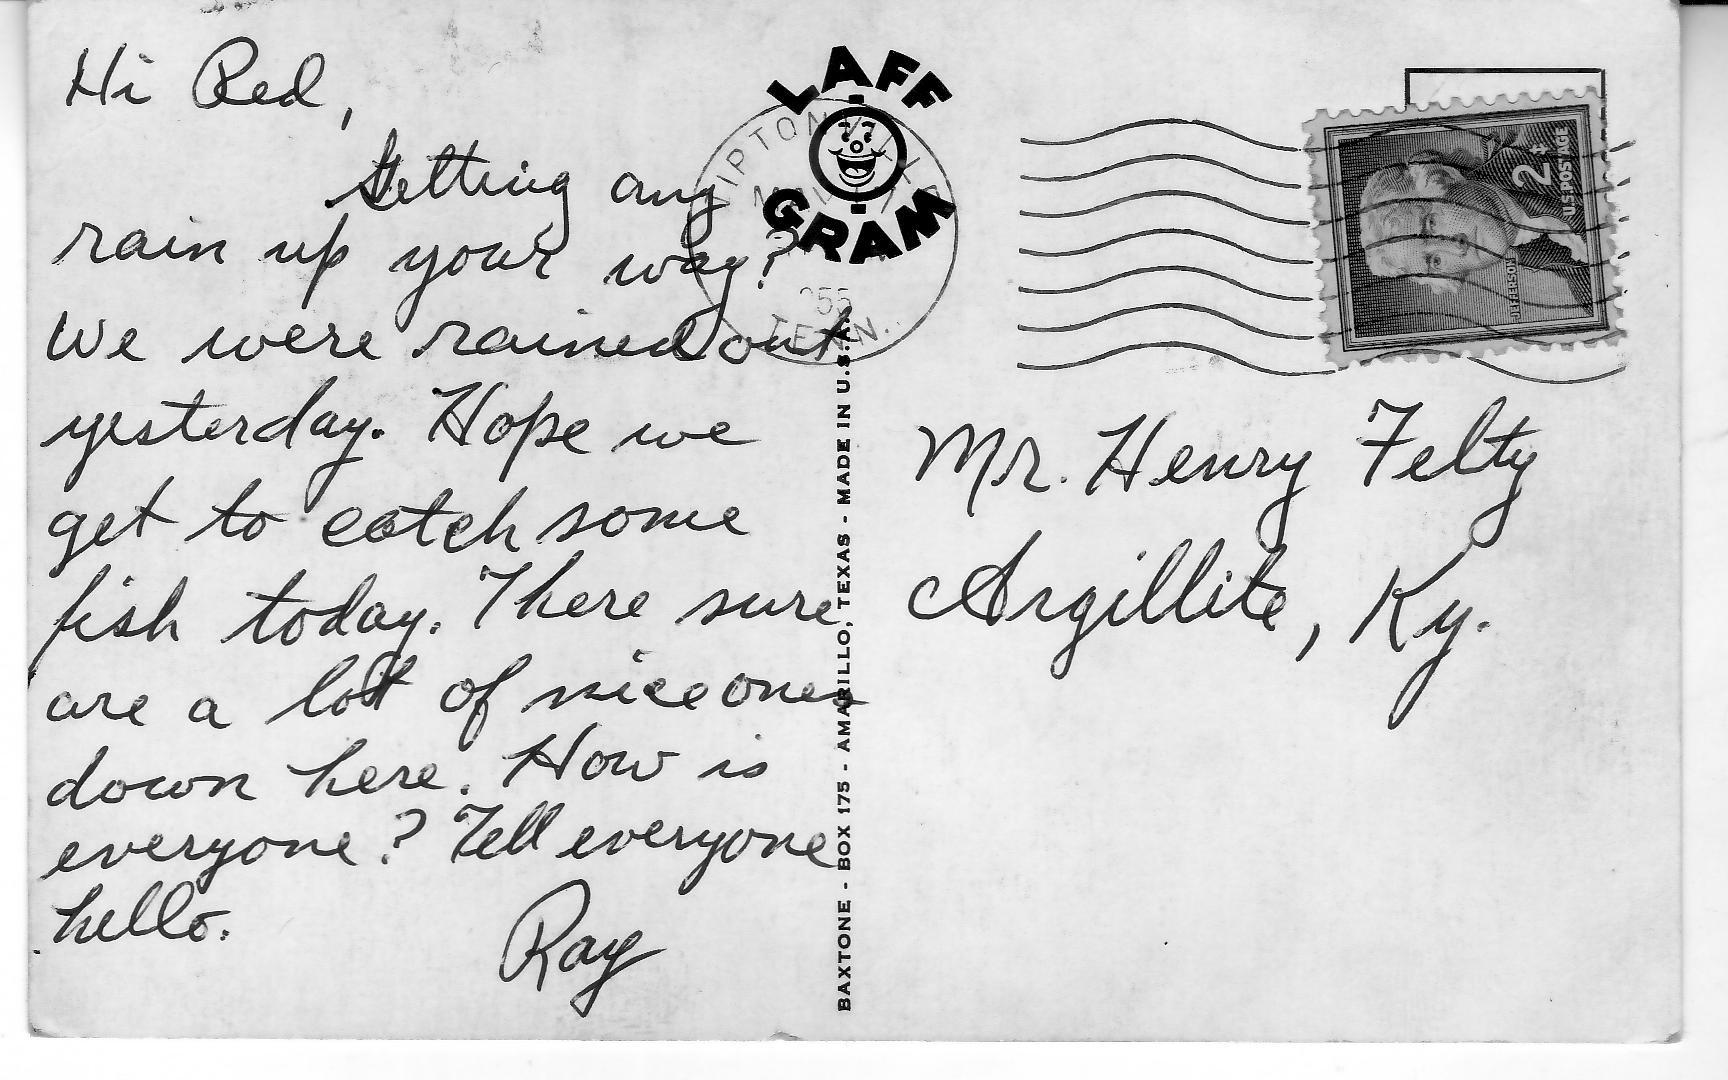 Hi Red,
Getting any
rain up your way?
We were rained out
yesterday. Hope we
get to catch some
fish today. There sure
are a lot of nice ones
down here. How is
everyone? Tell everyone
hello.
Ray
LAFF
GRAM
TIPTONVILLE
TENN.
BAXTONE - BOX 175 - AMARILLO, TEXAS - MADE IN U.S.A.
2¢
U.S. POSTAGE
JEFFERSON
Mr. Henry Felty
Argillite, Ky.